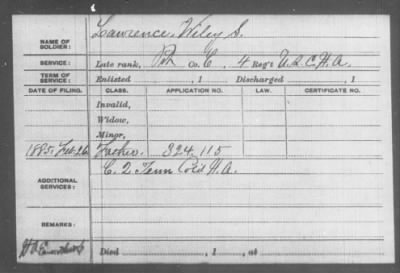 NAME OF SOLDIER: Lawrence, Wiley S.
SERVICE: Late rank, Pvt Co. C, 4 Reg't U.S.C.H.A.
TERM OF SERVICE: Enlisted , 1 Discharged , 1
DATE OF FILING. CLASS. APPLICATION NO. LAW. CERTIFICATE NO.
Invalid,
Widow,
Minor,
1885, Feb. 26 Father. 324.115
ADDITIONAL SERVICES: C. 2 Tenn Col'd H.A.
REMARKS:
Died , 1 , at